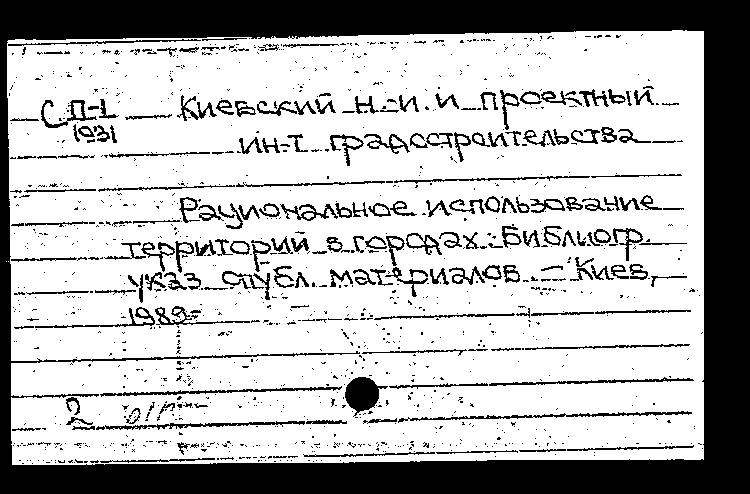 С П-1 Киевский н.-и. и проектный
1931 ин-т градостроительства
Рациональное использование
территорий в городах: Библиогр.
указ опубл. материалов. — Киев,
1989-
2